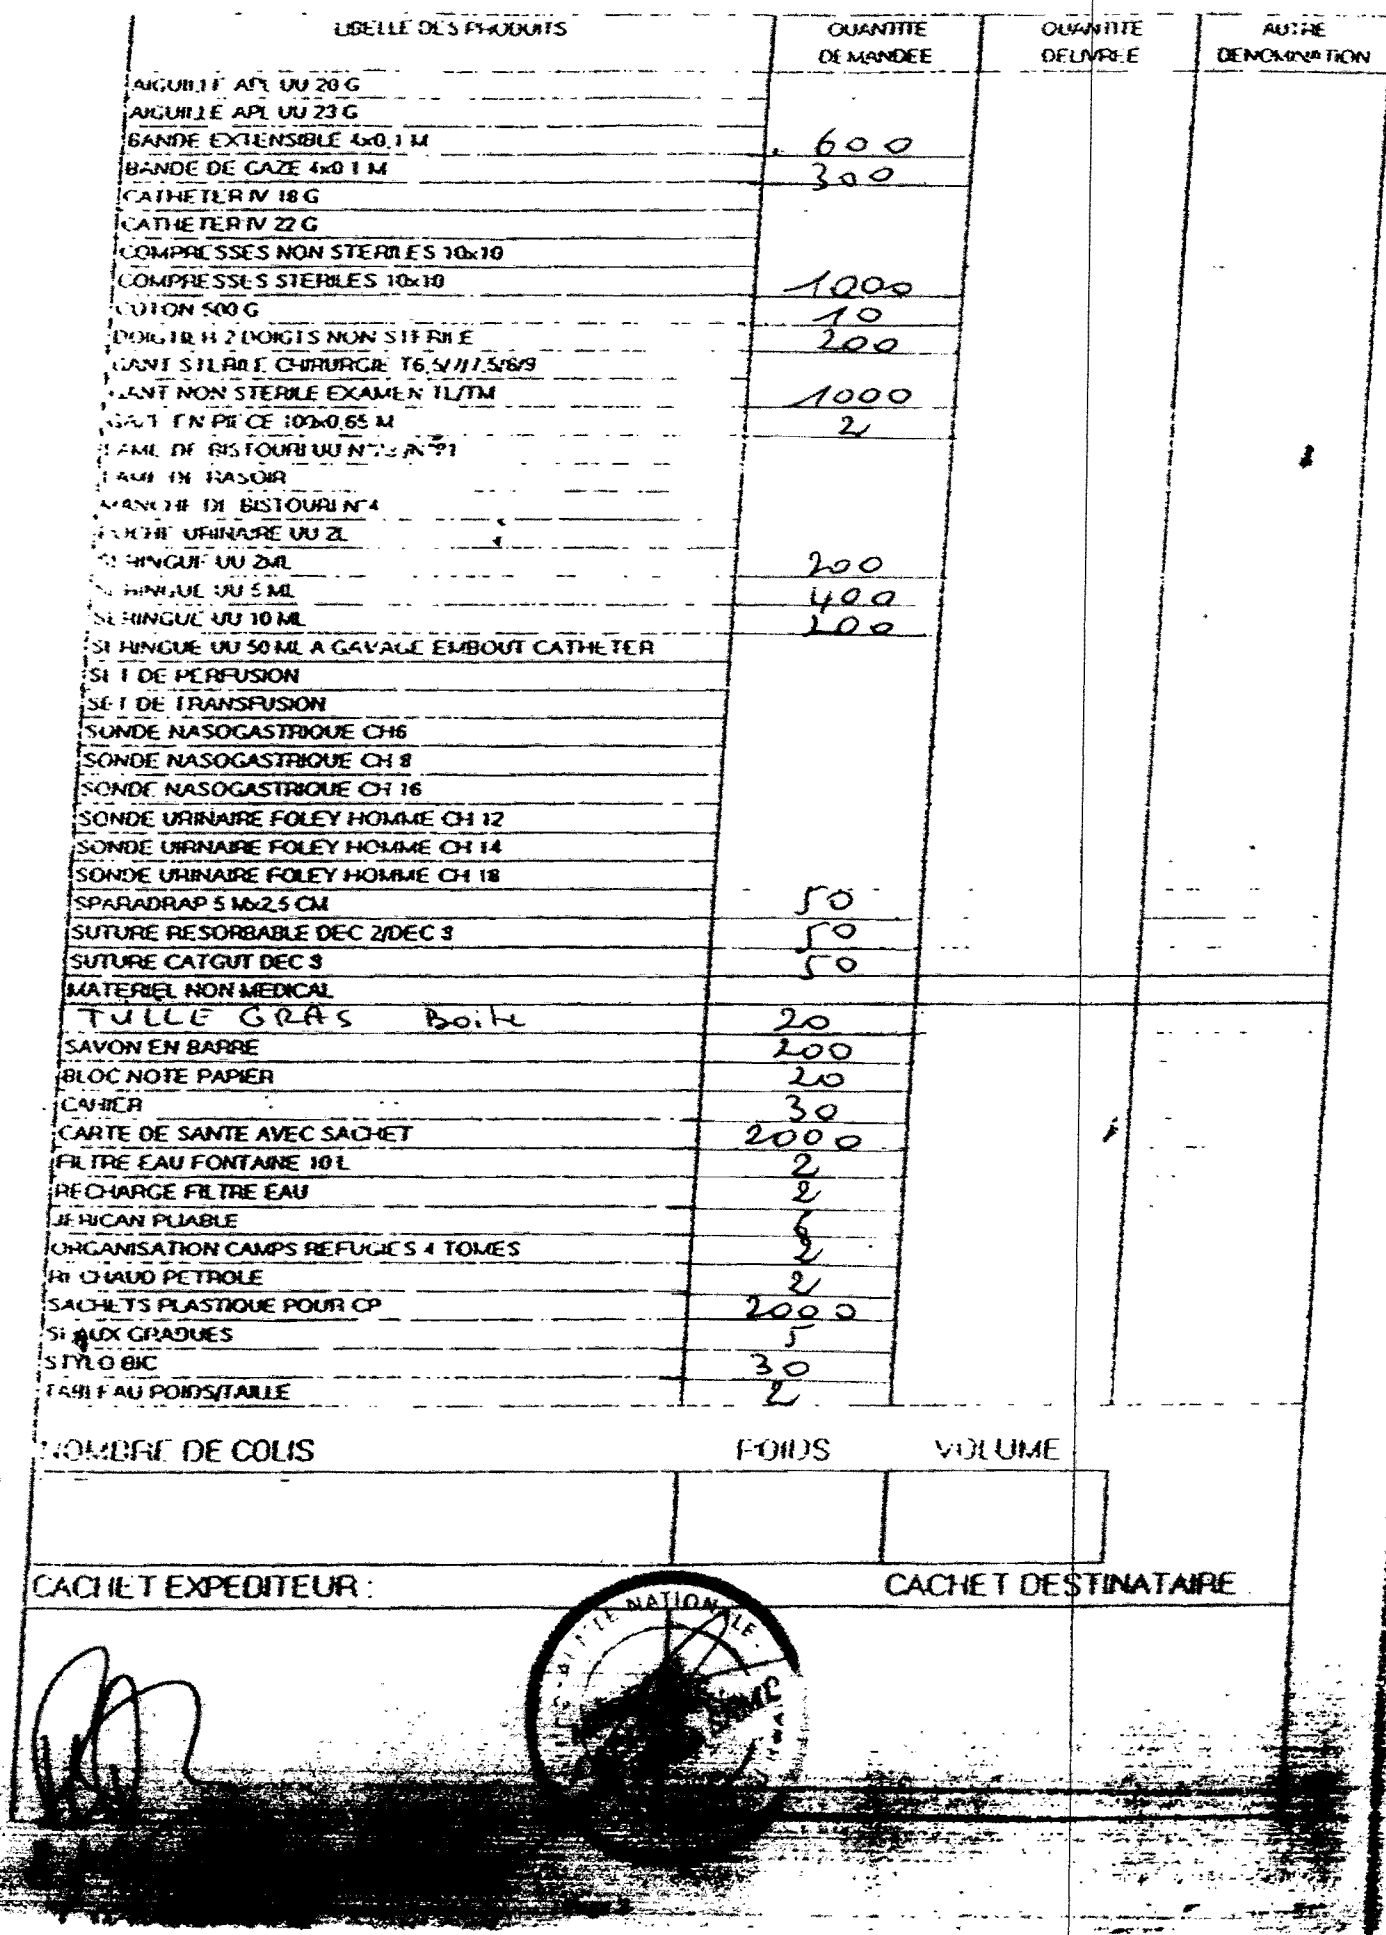 LIBELLE DES PRODUITS QUANTITE DEMANDEE QUANTITE DELIVREE AUTRE DENOMINATION
AIGUILLE APL UU 20 G
AIGUILLE APL UU 23 G
BANDE EXTENSIBLE 4x0,1 M 600
BANDE DE GAZE 4x0 1 M 300
CATHETER IV 18 G
CATHETER IV 22 G
COMPRESSES NON STERILES 10x10
COMPRESSES STERILES 10x10 1000
COTON 500 G 10
DOIGTIER 2 DOIGTS NON STERILE 200
GANT STERILE CHIRURGIE T6,5/7/7,5/8/9
GANT NON STERILE EXAMEN TL/TM 1000
EN PIECE 100x0,65 M 2
LAME DE BISTOURI UU
LAME DE RASOIR
MANCHE DE BISTOURI N°4
POCHE URINAIRE UU 2L
SERINGUE UU 2ML 200
SERINGUE UU 5 ML 400
SERINGUE UU 10 ML 200
SERINGUE UU 50 ML A GAVAGE EMBOUT CATHETER
SET DE PERFUSION
SET DE TRANSFUSION
SONDE NASOGASTRIQUE CH6
SONDE NASOGASTRIQUE CH 8
SONDE NASOGASTRIQUE CH 16
SONDE URINAIRE FOLEY HOMME CH 12
SONDE UIRNAIRE FOLEY HOMME CH 14
SONDE URINAIRE FOLEY HOMME CH 18
SPARADRAP 5 Mx2,5 CM 50
SUTURE RESORBABLE DEC 2/DEC 3 50
SUTURE CATGUT DEC 3 50
MATERIEL NON MEDICAL
TULLE GRAS Boite 20
SAVON EN BARRE 200
BLOC NOTE PAPIER 20
CAHIER 30
CARTE DE SANTE AVEC SACHET 2000
FILTRE EAU FONTAINE 10 L 2
RECHARGE FILTRE EAU 2
JERICAN PLIABLE
ORGANISATION CAMPS REFUGIES 4 TOMES 2
RECHAUD PETROLE 2
SACHETS PLASTIQUE POUR CP 2000
SEAUX GRADUES 5
STYLO BIC 30
TABLEAU POIDS/TAILLE 2
NOMBRE DE COLIS POIDS VOLUME
CACHET EXPEDITEUR : CACHET DESTINATAIRE
NATIONALE